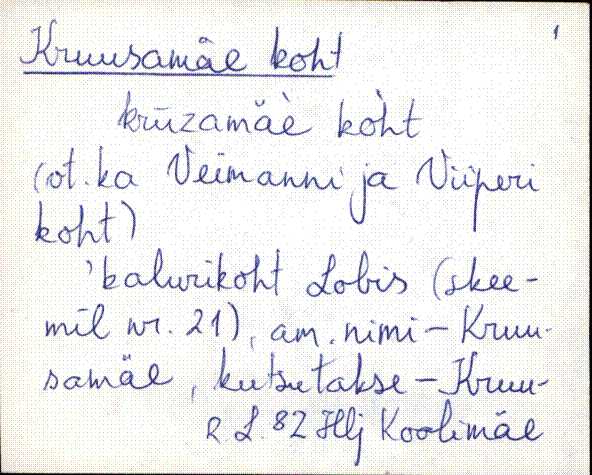 1
Kruusamäe koht
krūzamäè kòht
(ot. ka Veimanni ja Viiperi
koht)
'kalurikoht Lobis (skee-
mil nr. 21), am. nimi – Kruu-
samäe, kutsutakse – Kruu-
R L. 82 Hlj Koolimäe